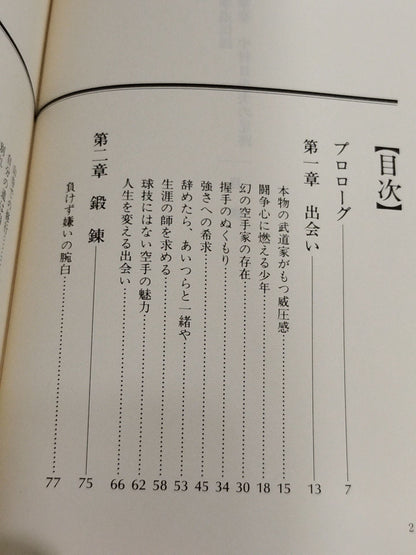 【目次】
プロローグ 7
第一章 出会い 13
本物の武道家がもつ威圧感 15
闘争心に燃える少年 18
幻の空手家の存在 30
握手のぬくもり 34
強さへの希求 45
辞めたら、あいつらと一緒や 53
生涯の師を求める 58
球技にはない空手の魅力 62
人生を変える出会い 66
第二章 鍛錬 75
負けず嫌いの腕白 77
2